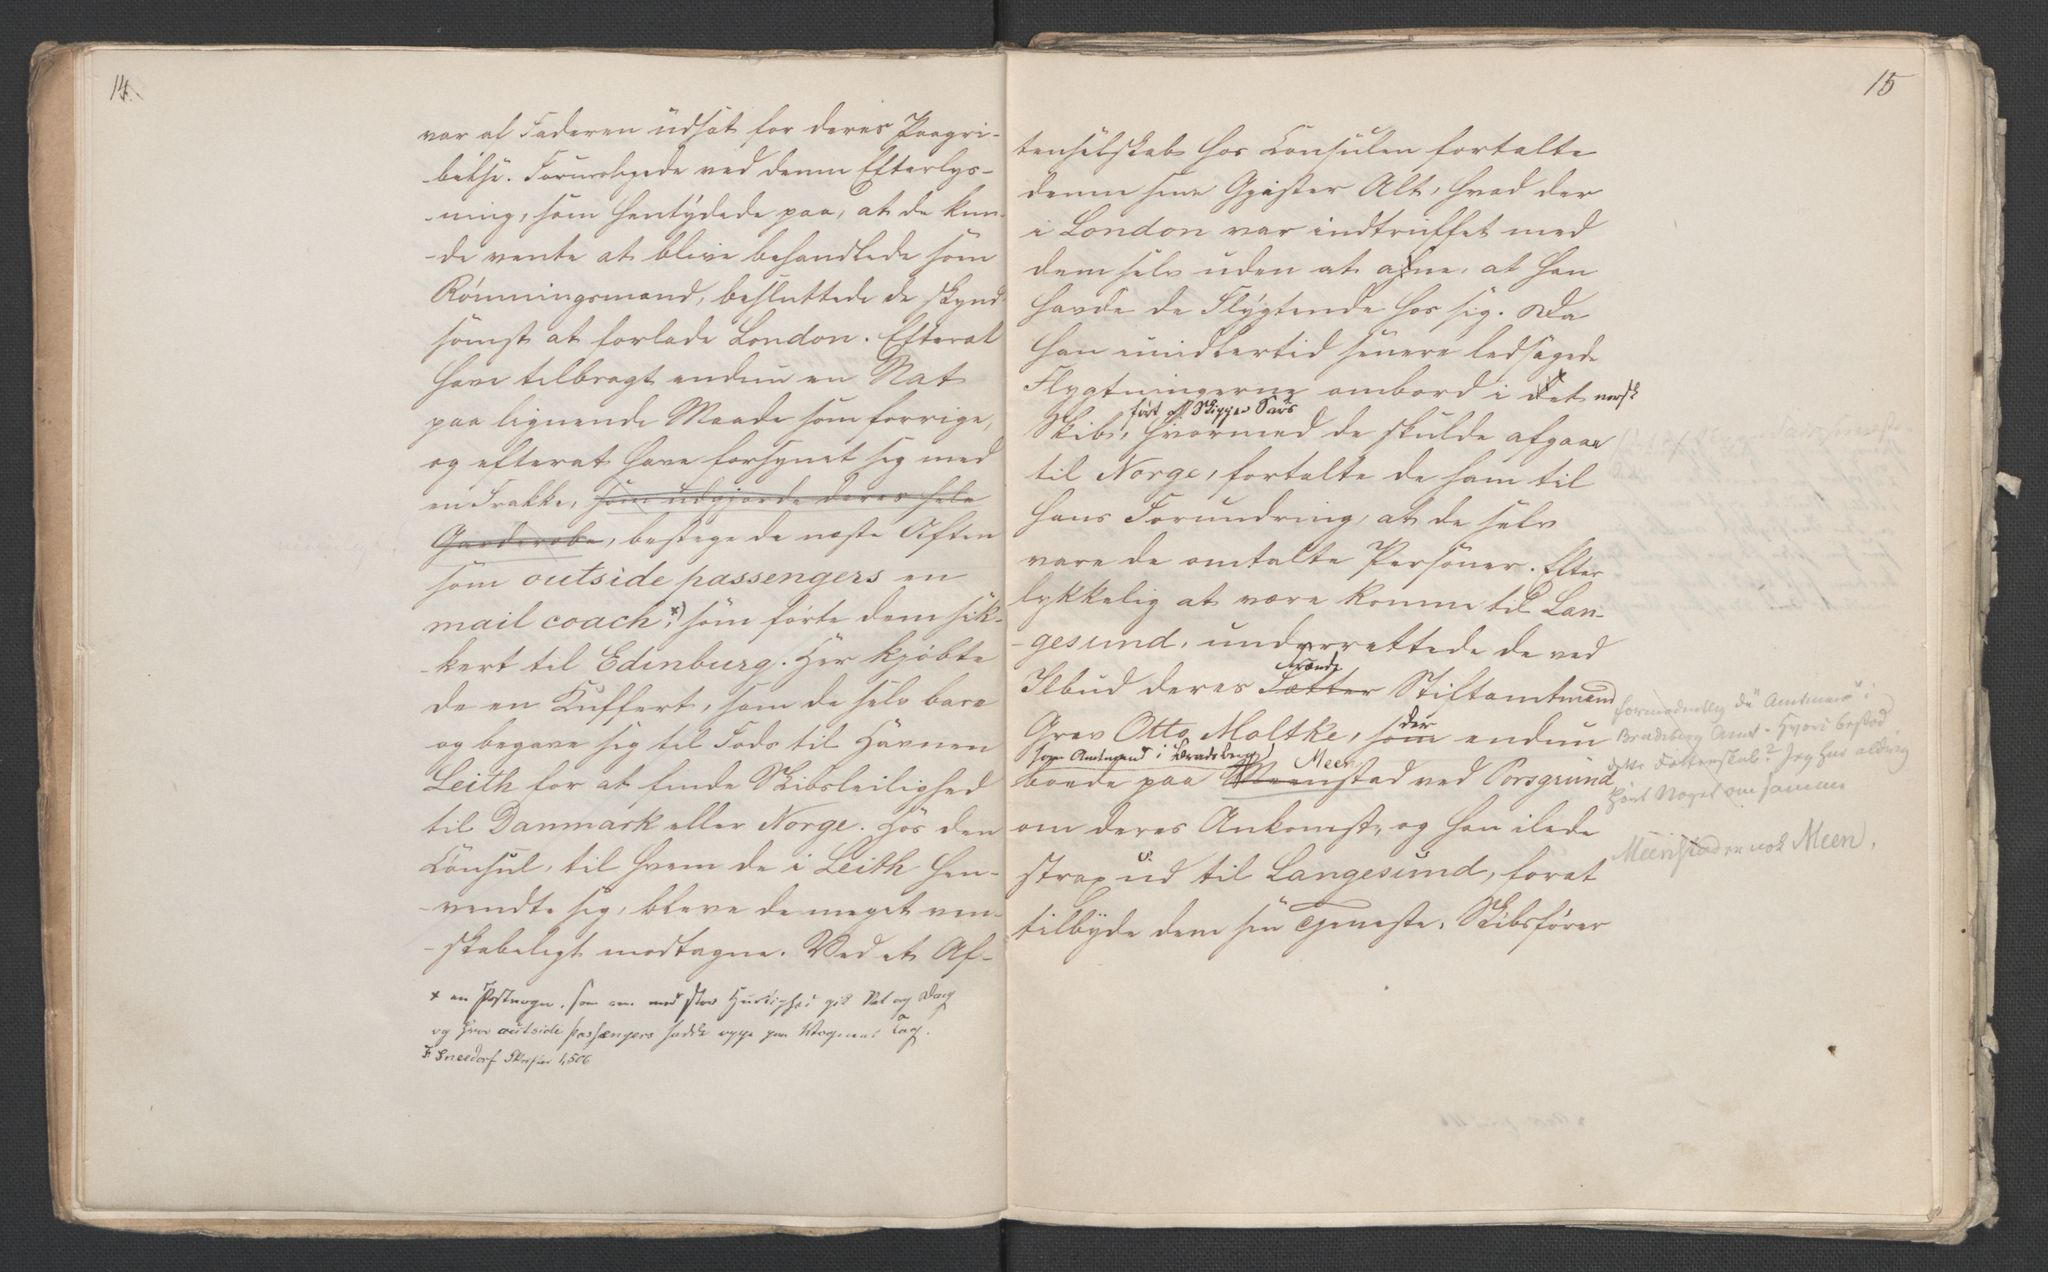 14.
var af Faderen udsat for deres Paagri-
belse. Foruroligede ved denne Efterlys-
-ning, som hentydede paa, at de kun-
-de vente at blive behandlede som
Rømningsmænd, besluttede de skynd-
somst at forlade London. Efterat
have tilbragt endnu en Nat
paa lignende Maade som forrige,
og efterat have forsynet sig med
en Frakke, som udgjorde deres hele
Garderobe, bestege de næste Aften
som outside passengers en
mail coach, *) som førte dem sik-
-kert til Edinburg. Her kjøbte
de en Kuffert, som de selv bare
og begave sig til Fods til Havnen
Leith for at finde Skibsleilighed
til Danmark eller Norge. Hos den
Consul, til hvem de i Leith hen-
-vendte sig, bleve de meget ven-
-skabeligt modtagne. Ved et Af-
* en Postvogn, som med stor Hurtighed gik Nat og Dag
og hvor outside passengers sadde oppe paa Vognens Tag.
F. Sneedorf Skrifter 1,506
15
tenselskab hos Consulen fortalte
denne sine Gjæster Alt, hvad der
i London var indtruffet med
dem selv uden at ane, at han
havde de Flygtende hos sig. Da
han imidlertid senere ledsagede
Flygtningerne ombord i det norsk
ført af Skipper Sars
Skib, hvormed de skulde afgaae
til Norge, fortalte de ham til
hans Forundring, at de selv
vare de omtalte Personer. Efter
lykkelig at være komne til Lan-
-gesund, underrettede de ved
Frænde
Ilbud deres Fætter Stiftamtmand
Grev Otto Moltke, som der endnu
som Amtmand i Bradsberg
Meen
boede paa Meenstad ved Porsgrund
om deres Ankomst, og han ilede
strax ud til Langesund, forat
tilbyde dem sin Tjeneste. Skibsfører
formodentlig da Amtmand i
Bradsberg Amt. Hvori bestod
dette Fætterskab? Jeg har aldrig
hørt Noget om samme
Meenstad er nok Meen.